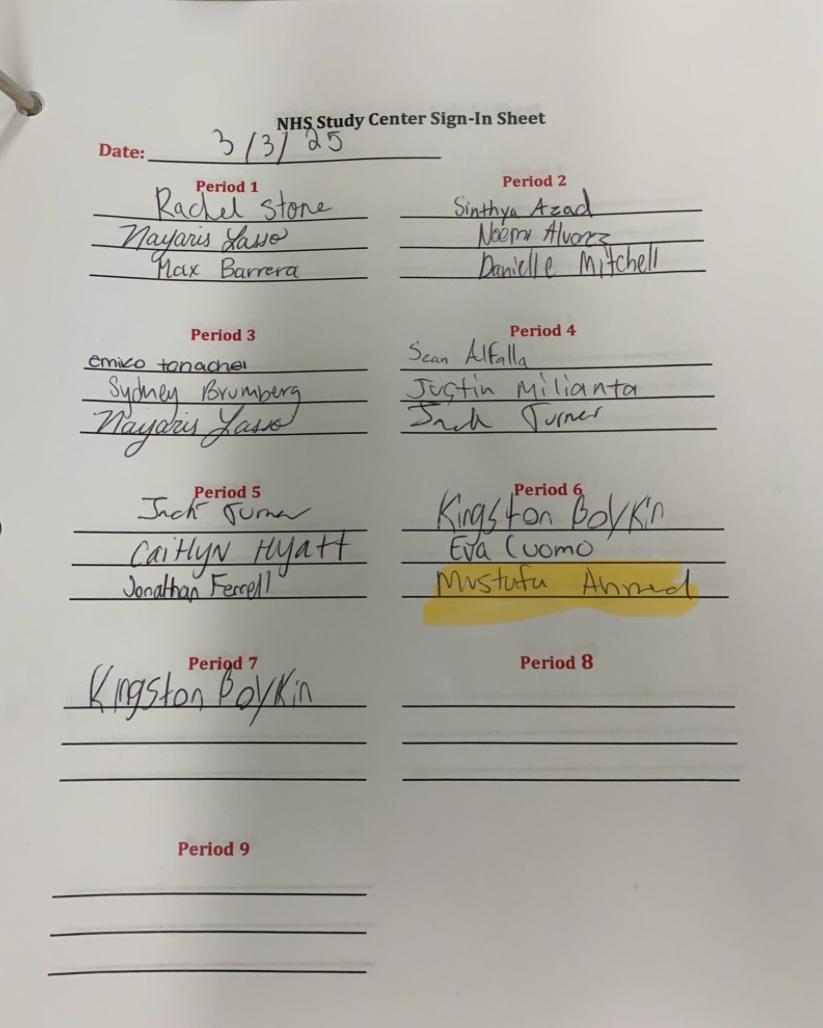 NHS Study Center Sign-In Sheet
Date: 3/3/25
Period 1
Rachel Stone
Nayaris Lasso
Max Barrera
Period 2
Sinthya Azad
Noemi Alvarz
Danielle Mitchell
Period 3
emiko tonachel
Sydney Brumberg
Nayaris Lasso
Period 4
Sean Alfalla
Justin Milianta
Jack Turner
Period 5
Jack Turner
CaiTHlyN Hyatt
Jonathan Ferrell
Period 6
Kingston Boykin
Eva Cuomo
Mustufa Ahmed
Period 7
Kingston Boykin
Period 8
Period 9